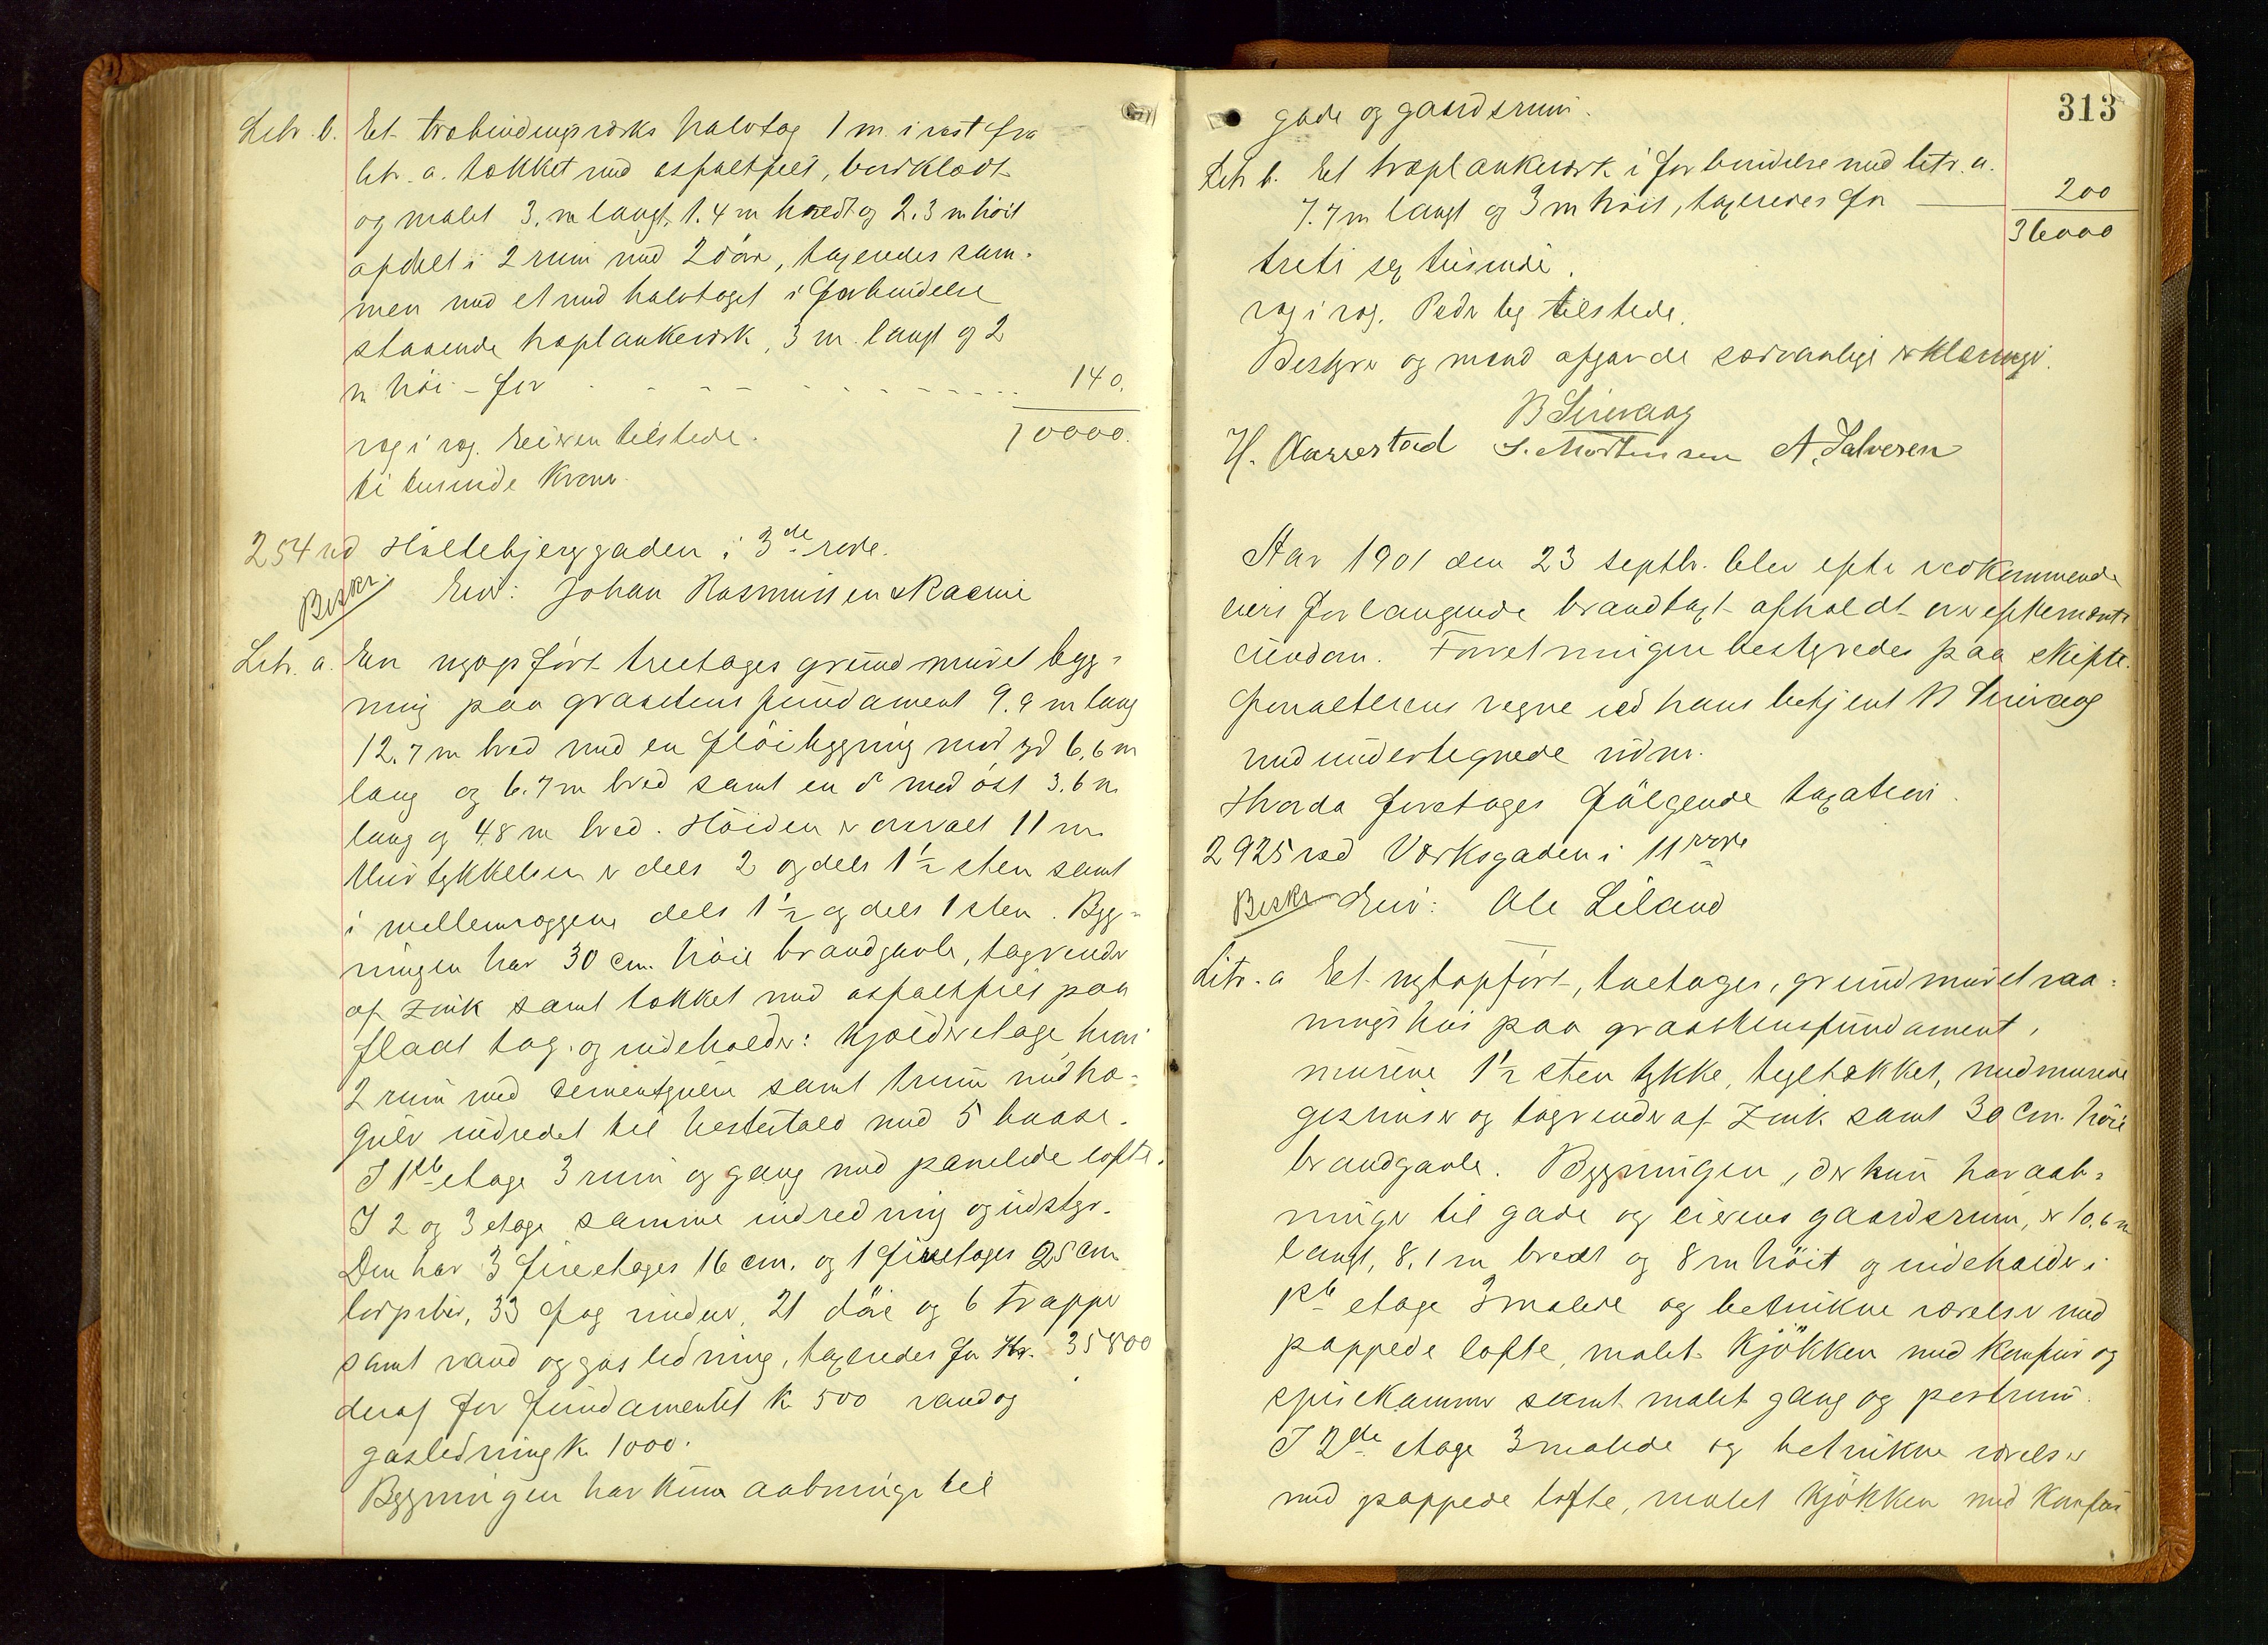 Litr. b. Et træbindingsværks halvtag 1 m. i vest fra
litr. a. tækket med asfaltfilt, bordklædt
og malet 3. m langt, 1.4 m bredt og 2.3 m höit
afdelt i 2 rum med 2 döre, taxeredes sam-
men med et med halvtaget i forbindelse
staaende træplankeværk, 3 m. langt og 2
m höi - for - - - - - - - 140.
væg i væg. Eieren tilstede. 10000.
ti tusinde kroner.
254 ved Höllebjerggaden i 3de rode.
Beskr. Eier: Johan Rasmussen Racine
Litr. a. En nyopfört treetages grundmuret byg-
ning paa graastens fundament 9.9 m lang
12.7 m bred med en flöibygning mod syd 6,6 m
lang og 6.7 m bred samt en do mod öst 3.6 m
lang og 4.8 m bred. Höiden er overalt 11 m.
Murtykkelsen er dels 2 og dels 1½ sten samt
i mellemvæggene dels 1½ og dels 1 sten. Byg-
ningen har 30 cm. höie brandgavle, tagrender
af zink samt tækket med asfaltfilt paa
fladt tag. og indeholder: Kjælderetage hvori
2 rum med sementgulve samt 1 rum med træ-
gulv indredet til hestestald med 5 baase.
I 1ste etage 3 rum og gang med panelede lofte.
I 2 og 3 etage samme indredning og udstyr.
Den har 3 fireetages 16 cm. og 1 fireetages 25 cm
, 33 fag vinduer, 21 döre og 6 trapper
samt vand og gasledning, taxeredes for Kr. 35800
deraf for fundamentet K. 500 vand og
gasledning K. 1000.
Bygningen har kun aabninger til
313
gade og gaardsrum.
Litr b. Et træplankeværk i forbindelse med litr. a.
7.7 m langt og 3 m höit, taxeredes for 200
36000
treti sex tusinde.
væg i væg. Peder tilstede.
Bestyrer og mænd afgav de sædvanlige erklæringer.
B Sirevaag
H. Aarrestad S. Mortensen A. Salvesen
Aar 1901 den 23 septbr. blev efter vedkommende
eiers forlangende brandtaxt afholdt over eftermeldte
eiendom. Forretningen bestyredes paa skifte-
forvalterens vegne ved hans betjent B Sirevaag
med undertegnede vidner.
Hvorda foretages fölgende taxation.
2925 ved Værksgaden i 11 rode
Beskr. Eier: Ole Liland
Litr. a Et nytopfört, toetages, grundmuret vaa-
ningshus paa graastensfundament,
murene 1½ sten tykke, tegltækket, med murede
gesimser og tagrender af zink samt 30 cm. höie
brandgavle. Bygningen, der kun har aab-
ninger til gade og eierens gaardsrum, er 10.6 m
langt, 8,1 m bredt og 8 m höit og indeholder i
1ste etage 3 malede og betrukne værelser med
pappede lofte, malet kjökken med komfur og
spisekammer samt malet gang og
I 2de etage 3 malede og betrukne værelser
med pappede lofte, malet kjökken med komfur